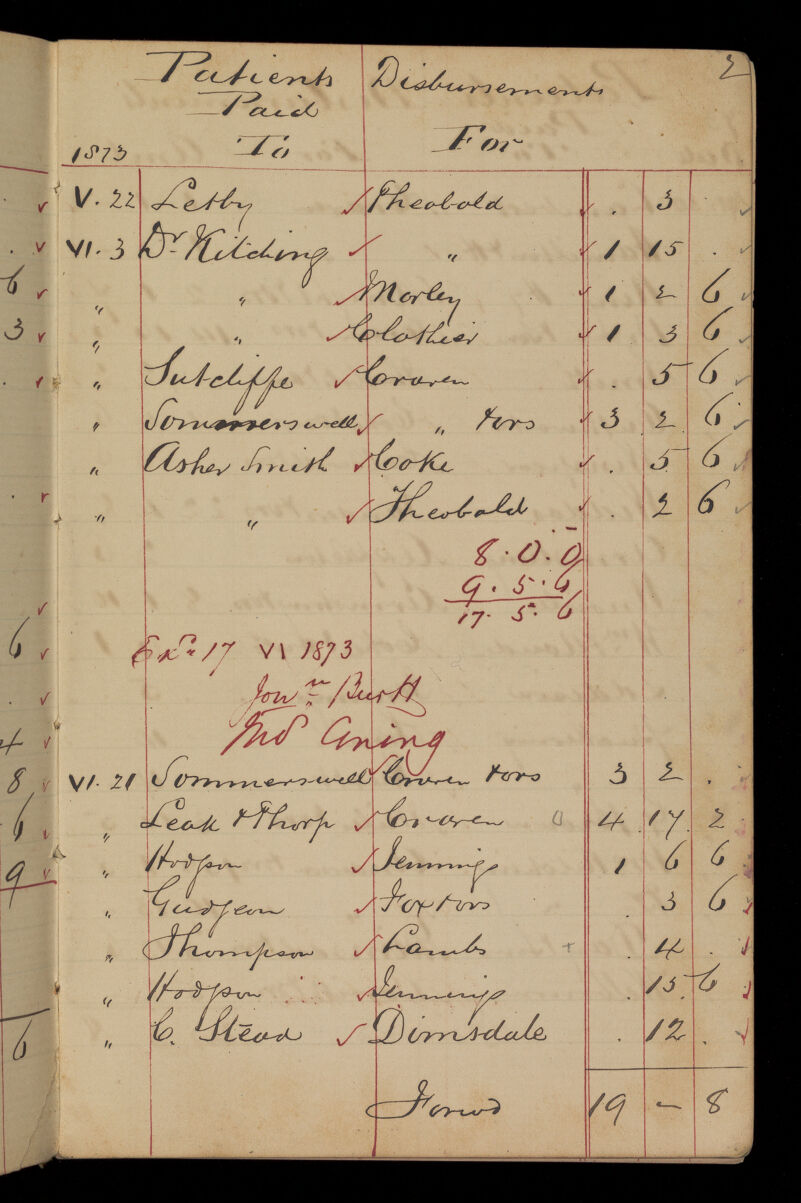 2
Patients Disbursements
Paid
1873 To For
V. 22 Letby Theobald . 3 .
VI. 3 Dr Kitching " 1 15 .
" " Morley 1 2 6
" " Clothier 1 3 6
" Sutcliffe Craven . 5 6
" Sommerswell " &ors 3 2 6
" Asher Smith Coke . 5 6
" " Theobald . 2 6
8.0.0
9.5.6
17.5.6
Exd 17 VI 1873
Jonn Burtt
VI. 21 Sommerswell Craven &ors 3 2 .
" Leak & Thorp Craven 4 17 2
" Hodgson Jennings 1 6 6
" Gudgeon Fox &ors . 3 6
" Thompson Lambs . 4 .
" Hodgson Jennings . 15 6
" C. Stead Dimsdale . 12 .
Forwd 19 - 8
6
3
6
4
8
6
9
6